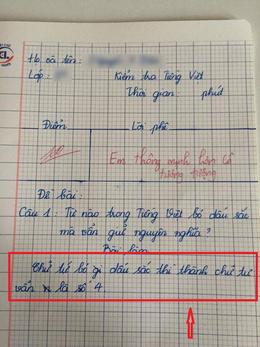 Họ và tên :
Lớp :
Kiểm tra Tiếng Việt
Thời gian : phút
Điểm
Lời phê
Em thông minh hơn cô
tưởng tượng
Đề bài:
Câu 1 : Từ nào trong Tiếng Việt bỏ dấu sắc
mà vẫn giữ nguyên nghĩa ?
Bài làm
Chữ tứ bỏ dấu sắc thì thành chữ tư
vẫn là số 4